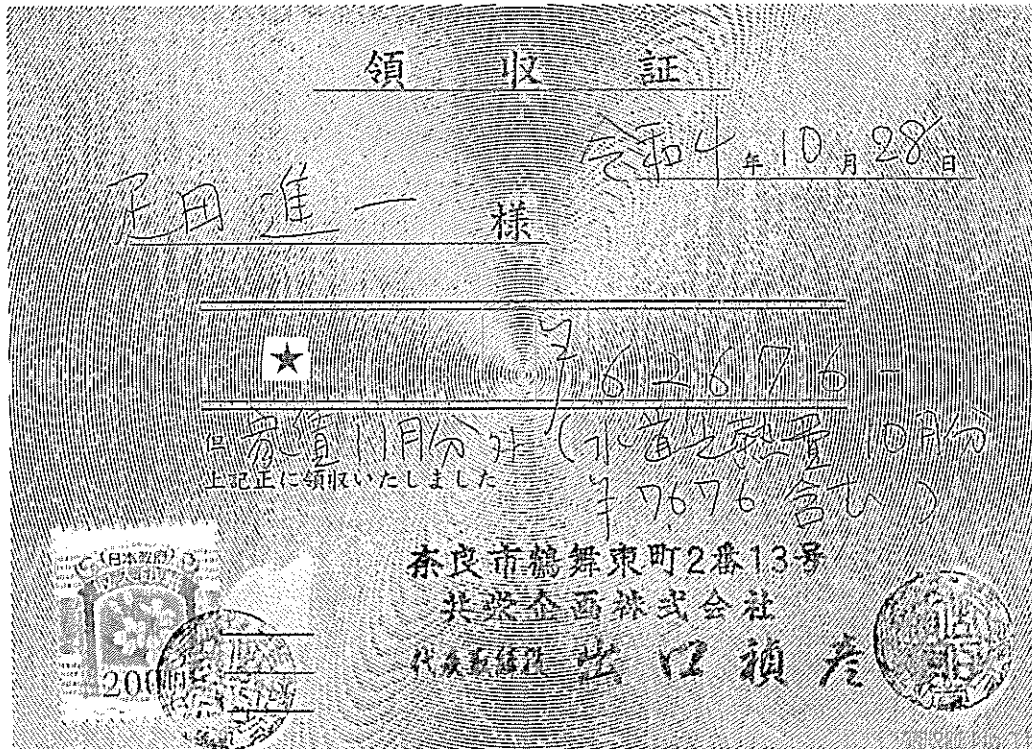 領収証
令和4年10月28日
疋田進一 様
★ ¥62676-
但 家賃11月分也(水道光熱費10月分
上記正に領収いたしました
¥7,676含む)
奈良市鶴舞東町2番13号
共栄企画株式会社
代表取締役 出口禎彦
日本政府
200